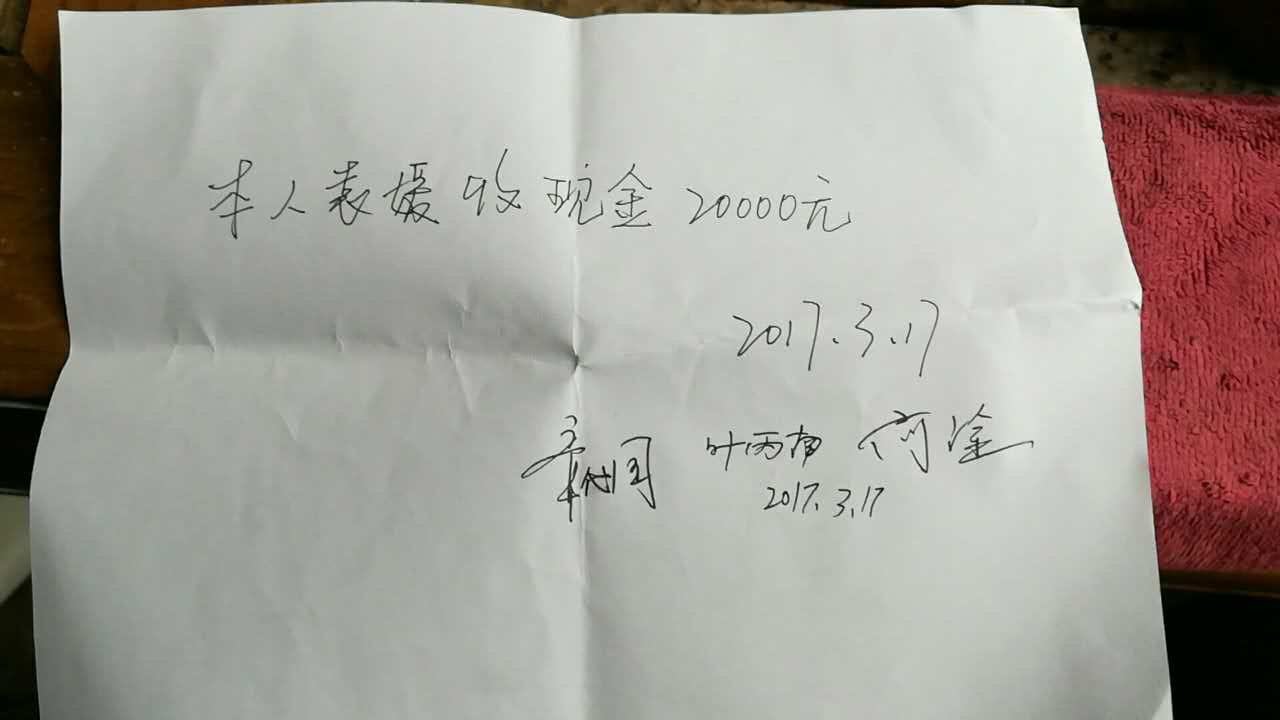 本人袁媛收现金20000元
2017.3.17
叶丙南 何淦
2017.3.17